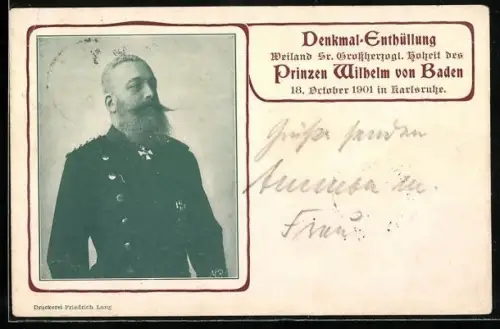 Denkmal-Enthüllung
Weiland Sr. Großherzogl. Hoheit des
Prinzen Wilhelm von Baden
18. October 1901 in Karlsruhe.
Grüße senden
m.
Frau
Druckerei Friedrich Lang